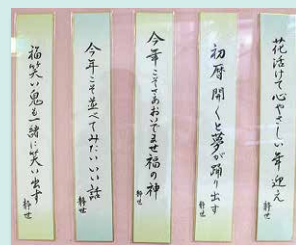 花活けて心やさしい年迎え
静世
初暦開くと夢が踊り出す
静世
今年こそさあおいでませ福の神
静世
今年こそ並べてみたいいい話
静世
福笑い鬼も一緒に笑い出す
静世